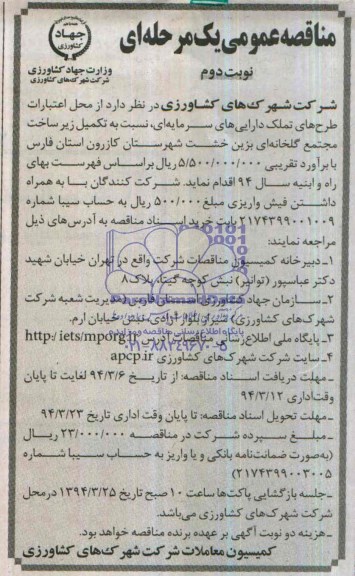 مناقصه عمومی یک مرحله‌ای
جهاد
کشاورزی
وزارت جهاد کشاورزی
شرکت شهرک‌های کشاورزی
نوبت دوم
شرکت شهرک‌های کشاورزی در نظر دارد از محل اعتبارات
طرح‌های تملک دارایی‌های سرمایه‌ای، نسبت به تکمیل زیر ساخت
مجتمع گلخانه‌ای بزین خشت شهرستان کازرون استان فارس
با برآورد تقریبی ۵/۵۰۰/۰۰۰/۰۰۰ ریال براساس فهرست بهای
راه و ابنیه سال ۹۴ اقدام نماید. شرکت کنندگان بنا به همراه
داشتن فیش واریزی مبلغ ۵۰۰/۰۰۰ ریال به حساب سیبا شماره
۲۱۷۴۳۹۹۰۰۱۰۰۹ بابت خرید اسناد مناقصه به آدرس‌های ذیل
مراجعه نمایند:
۱ـ دبیرخانه کمیسیون مناقصات شرکت واقع در تهران خیابان شهید
دکتر عباسپور (توانیر) نبش کوچه گیتا، پلاک ۸
۲ـ سازمان جهاد کشاورزی استان فارس (مدیریت شعبه شرکت
شهرک‌های کشاورزی) شیراز بلوار آزادی، نبش خیابان ارم.
۳ـ پایگاه ملی اطلاع‌رسانی مناقصات آدرس http:/iets/mporg.ir
پایگاه اطلاع‌رسانی مناقصه و مزایده
۰۲۱-۸۸۳۴۹۶۷۰-۵
۴ـ سایت شرکت شهرک‌های کشاورزی apcp.ir
ـ مهلت دریافت اسناد مناقصه: از تاریخ ۹۴/۳/۶ لغایت تا پایان
وقت اداری ۹۴/۳/۱۲
ـ مهلت تحویل اسناد مناقصه: تا پایان وقت اداری تاریخ ۹۴/۳/۲۳
ـ مبلغ سپرده شرکت در مناقصه ۲۳/۰۰۰/۰۰۰ ریال
(به‌صورت ضمانت‌نامه بانکی و یا واریز به حساب سیبا شماره
۲۱۷۴۳۹۹۰۰۳۰۰۵)
ـ جلسه بازگشایی پاکت‌ها ساعت ۱۰ صبح تاریخ ۱۳۹۴/۳/۲۵ در محل
شرکت شهرک‌های کشاورزی می‌باشد.
ـ هزینه دو نوبت آگهی بر عهده برنده مناقصه خواهد بود.
کمیسیون معاملات شرکت شهرک‌های کشاورزی